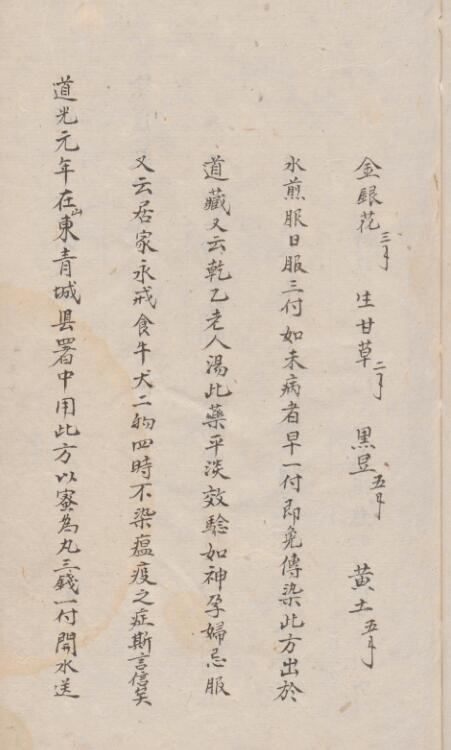 金銀花三錢 生甘草二錢 黑豆五錢 黃土五錢
水煎服日服三付如未病者早一付即免傳染此方出於
道藏又云乾乙老人湯此藥平淡效驗如神孕婦忌服
又云居家永戒食牛犬二物四時不染瘟疫之症斯言信矣
道光元年在山東青城县署中用此方以蜜為丸三錢一付開水送